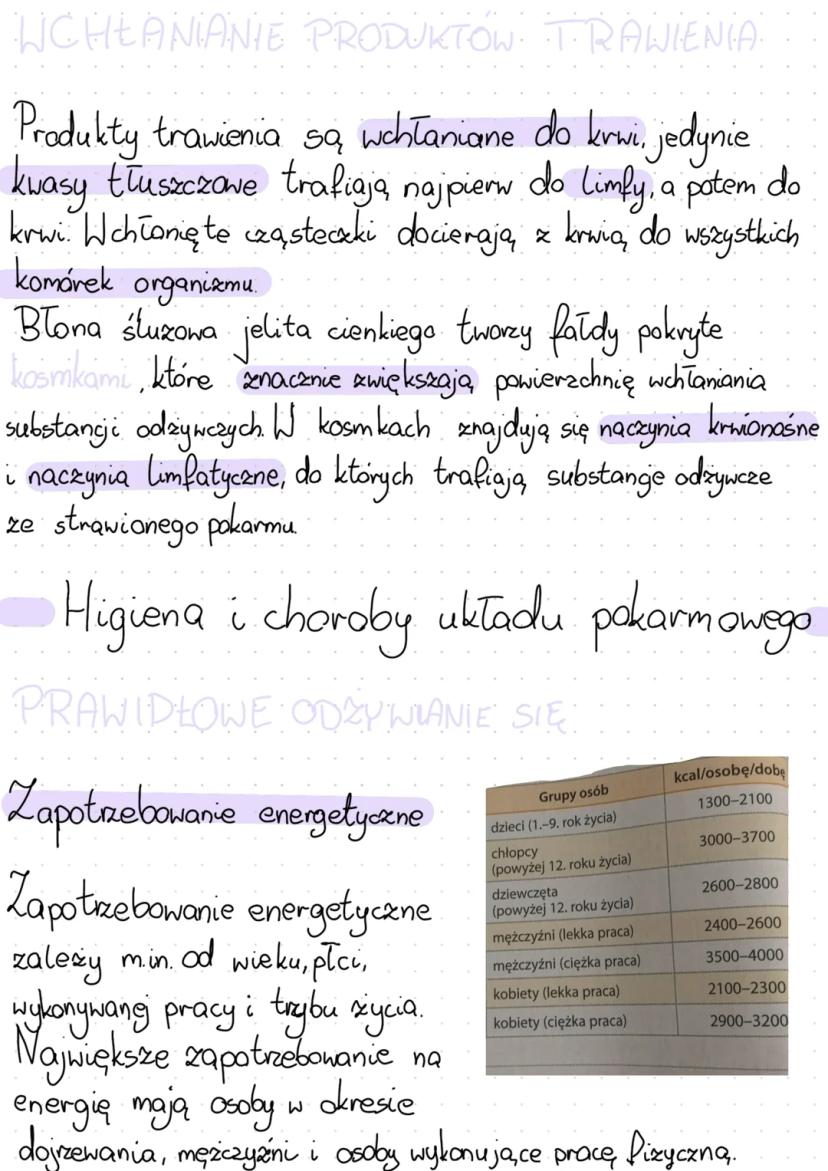 WCHŁANIANIE PRODUKTÓW TRAWIENIA
Produkty trawienia są wchłaniane do krwi, jedynie
kwasy tłuszczowe trafiają najpierw do limfy, a potem do
krwi. Wchłonięte cząsteczki docierają z krwią do wszystkich
komórek organizmu.
Błona śluzowa jelita cienkiego tworzy fałdy pokryte
kosmkami, które znacznie zwiększają powierzchnię wchłaniania
substancji odżywczych. W kosmkach znajdują się naczynia krwionośne
i naczynia limfatyczne, do których trafiają substancje odżywcze
ze strawionego pokarmu.
Higiena i choroby układu pokarmowego
PRAWIDŁOWE ODŻYWIANIE SIĘ
Zapotrzebowanie energetyczne
Zapotrzebowanie energetyczne
zależy m.in. od wieku, płci,
wykonywanej pracy i trybu życia.
Największe zapotrzebowanie na
energię mają osoby w okresie
dojrzewania, mężczyźni i osoby wykonujące pracę fizyczną.
Grupy osób kcal/osobę/dobę
dzieci (1.–9. rok życia) 1300–2100
chłopcy
(powyżej 12. roku życia) 3000–3700
dziewczęta
(powyżej 12. roku życia) 2600–2800
mężczyźni (lekka praca) 2400–2600
mężczyźni (ciężka praca) 3500–4000
kobiety (lekka praca) 2100–2300
kobiety (ciężka praca) 2900–3200